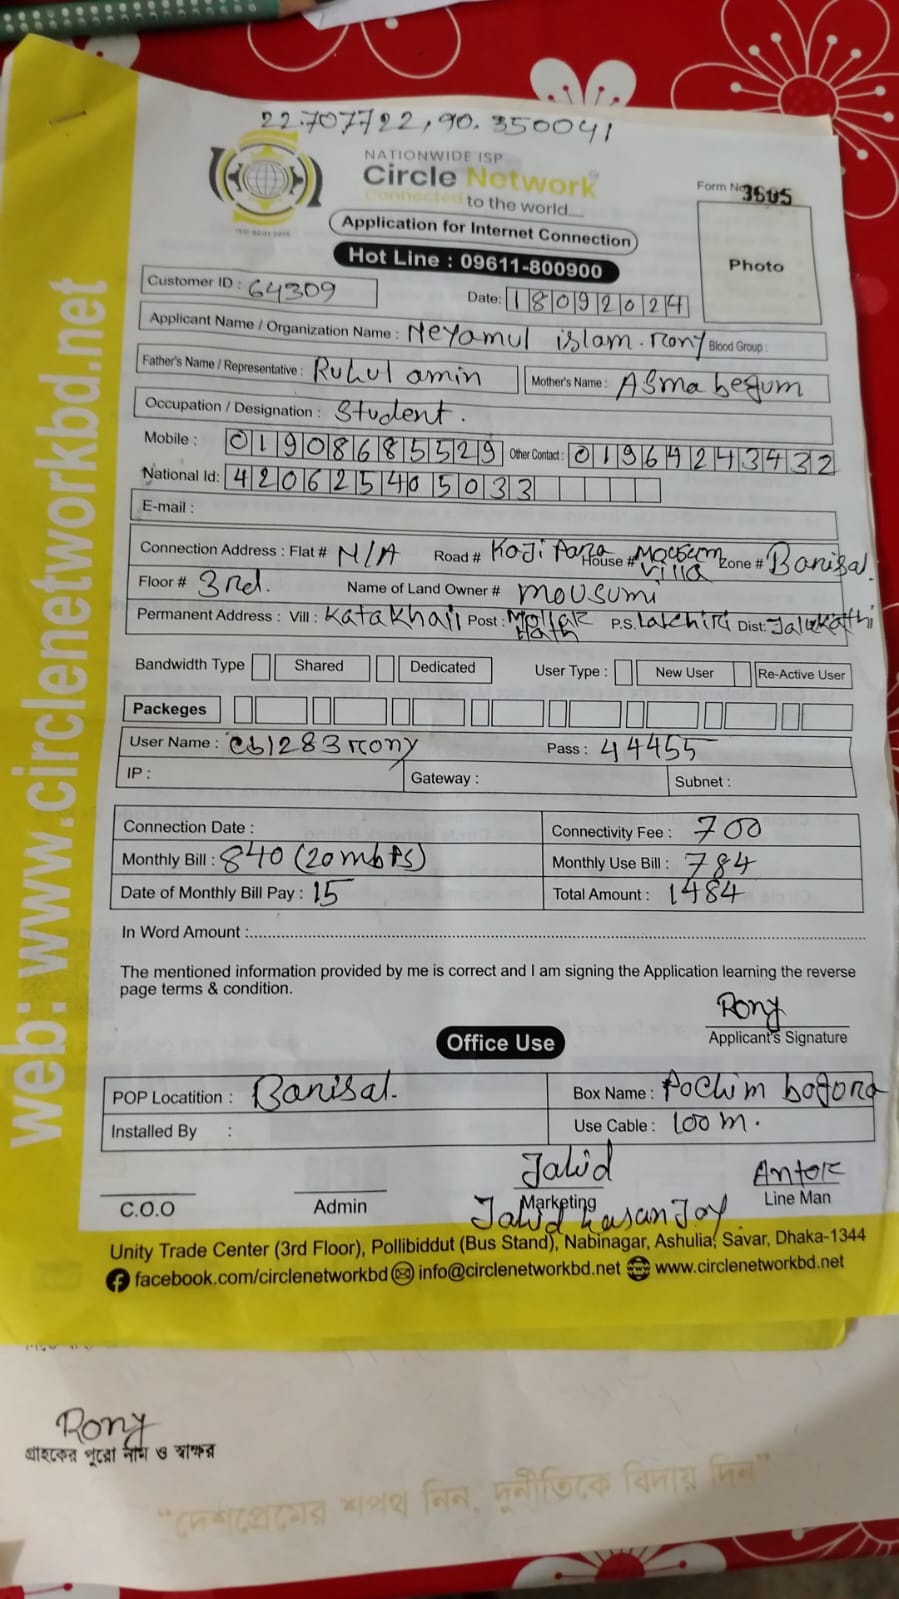 22.707722, 90.350041
NATIONWIDE ISP
Circle Network
Connected to the world.....
ISO 9001:2015
Form No
Application for Internet Connection
Hot Line : 09611-800900
Photo
Customer ID : 64309
Date: 18092024
Applicant Name / Organization Name : Neyamul islam. rony Blood Group :
Father's Name / Representative : Ruhul amin Mother's Name : Asma begum
Occupation / Designation : Student.
Mobile : 01908685529 Other Contact : 01964243432
National Id: 420625405033
E-mail :
Connection Address : Flat # N/A Road # Kaji Para House # Mousum villa Zone # Barisal.
Floor # 3rd. Name of Land Owner # mousumi
Permanent Address : Vill : Katakhali Post : Mollar Hath P.S. Dist: Jalokathi
Bandwidth Type Shared Dedicated User Type : New User Re-Active User
Packeges
User Name : cb1283rony Pass : 44455
IP : Gateway : Subnet :
Connection Date : Connectivity Fee : 700
Monthly Bill : 840 (20mbPs) Monthly Use Bill : 784
Date of Monthly Bill Pay : 15 Total Amount : 1484
In Word Amount :
The mentioned information provided by me is correct and I am signing the Application learning the reverse
page terms & condition.
Rony
Applicant's Signature
Office Use
POP Locatition : Barisal. Box Name : Pochim bogora
Installed By : Use Cable : 100 m.
Jahid Antor
C.O.O Admin Marketing Line Man
Jahid hasan Joy
Unity Trade Center (3rd Floor), Pollibiddut (Bus Stand), Nabinagar, Ashulia, Savar, Dhaka-1344
facebook.com/circlenetworkbd info@circlenetworkbd.net www.circlenetworkbd.net
web: www.circlenetworkbd.net
Rony
গ্রাহকের পুরো নাম ও স্বাক্ষর
“দেশপ্রেমের শপথ নিন, দুর্নীতিকে বিদায় দিন”